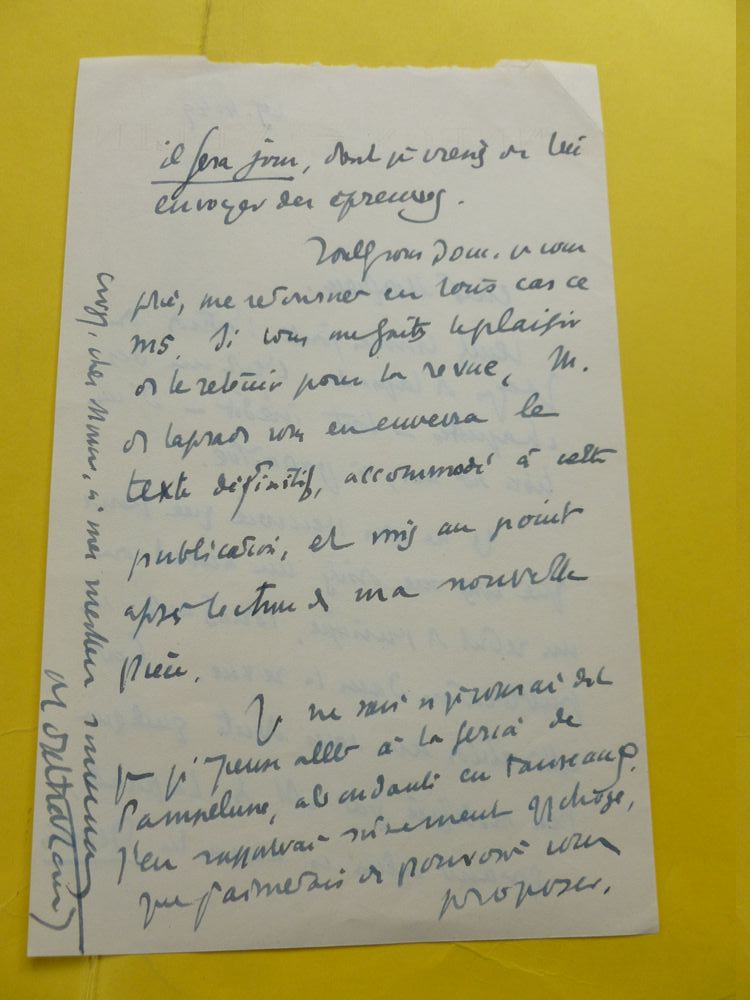 il fera jour, dont je viens de lui
envoyer des épreuves.
Veuillez donc, je vous
prie, me retourner en tous cas ce
ms. Si vous me faites le plaisir
de le retenir pour la revue, M.
de Laprade vous en enverra le
texte définitif, accommodé à cette
publication, et mis au point
après lecture de ma nouvelle
pièce.
Je ne sais si je vous ai dit
que je pense aller à la feria de
Pampelune, abondante en taureaux.
J'en rapporterai sûrement qq chose,
que j'aimerais de pouvoir vous
proposer.
Croyez, cher Monsieur, à mes meilleurs sentiments
Montherlant